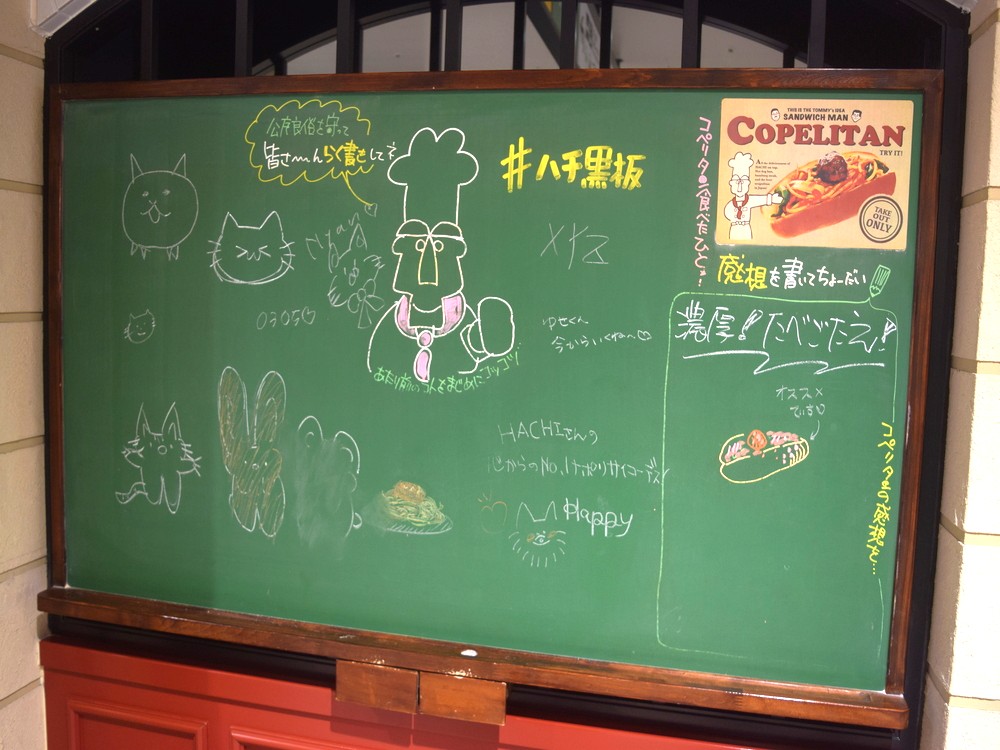 公序良俗を守って
皆さ〜〜んらく書きしてネ
#ハチ黒板
コペリタ食べたひと〜
THIS IS THE TOMMY's IDEA
SANDWICH MAN
COPELITAN
TRY IT!
TAKE
OUT
ONLY
感想を書いてちょーだい
濃厚!たべごたえ!
オススメ
です
コペリタの感想を…
0305♡
ゆせくん
あたり前のコトをまじめにコツコツ
HACHIさんの
心からのNo.1ナポリサイコーデス
Happy